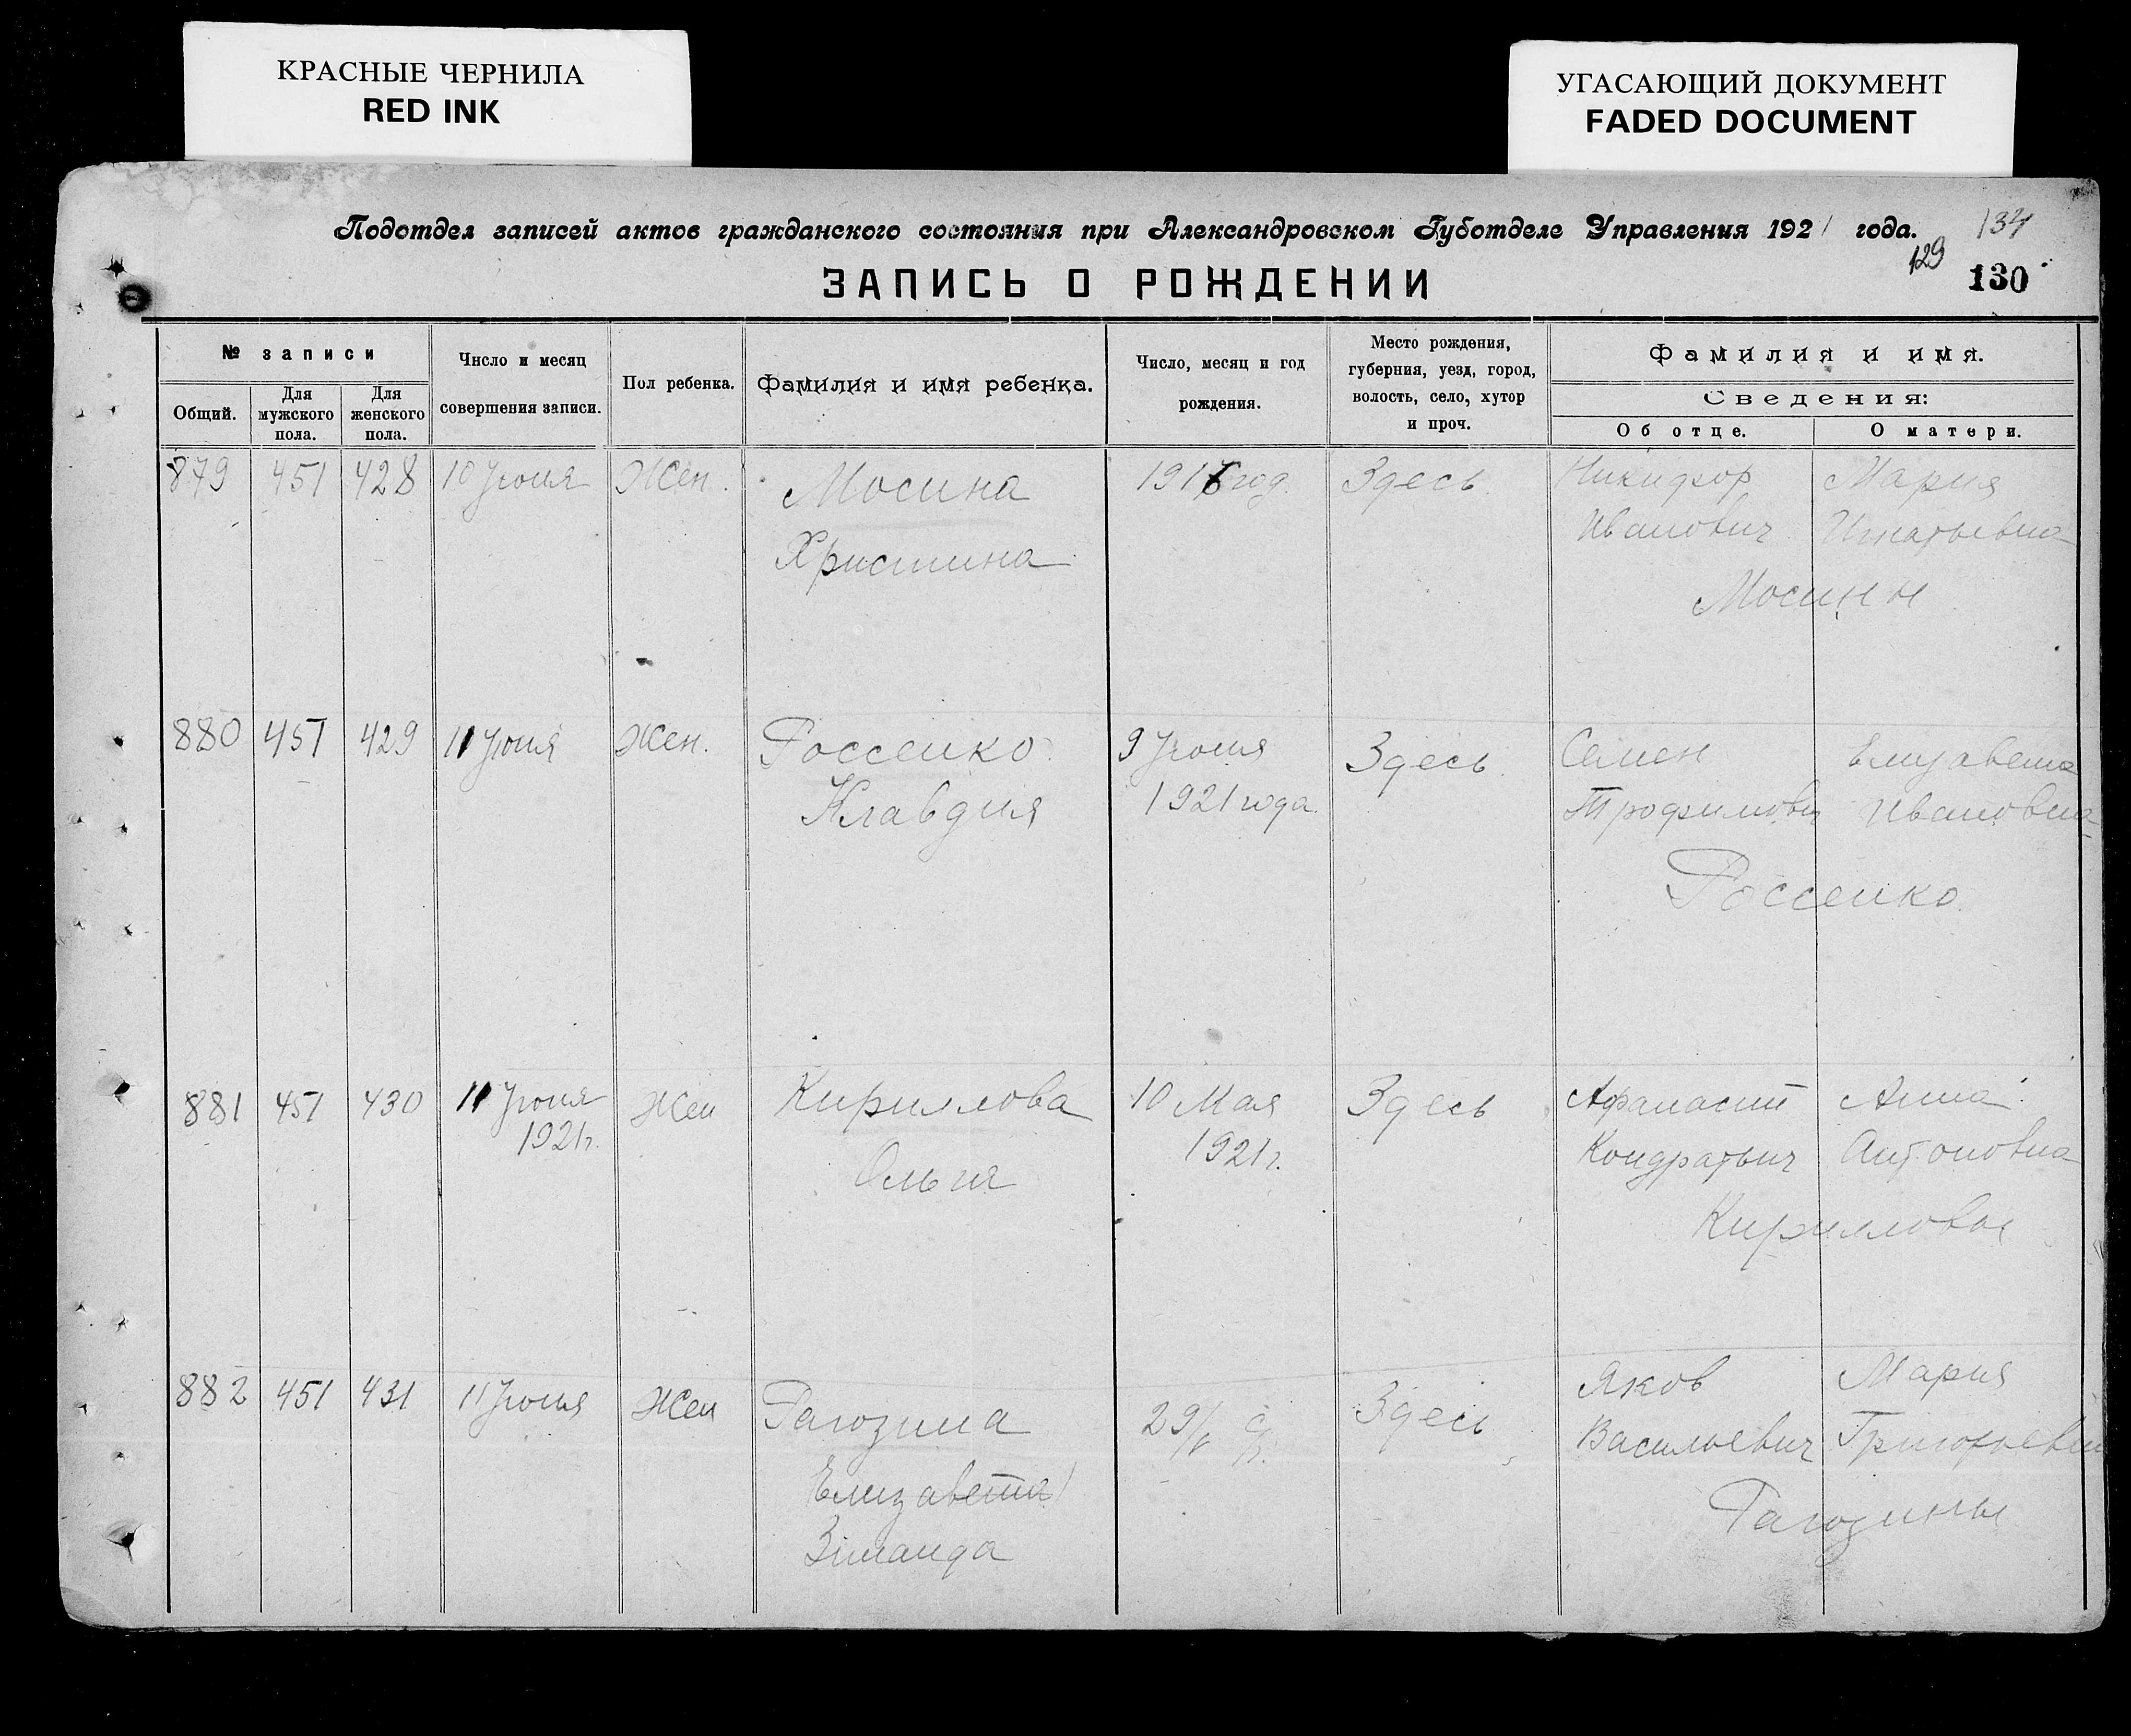 КРАСНЫЕ ЧЕРНИЛА
RED INK
УГАСАЮЩИЙ ДОКУМЕНТ
FADED DOCUMENT
Подотдел записей актов гражданского состояния при Александровском Губотделе Управления 1921 года.
134
129
130
ЗАПИСЬ О РОЖДЕНИИ
№ записи
Общий.
Для мужского пола.
Для женского пола.
Число и месяц
совершения записи.
Пол ребенка.
Фамилия и имя ребенка.
Число, месяц и год
рождения.
Место рождения,
губерния, уезд, город,
волость, село, хутор
и проч.
Фамилия и имя.
Сведения:
Об отце.
О матери.
879 451 428 10 Июня Жен. Мосина год. Здесь. Никифор Мария
Христина Иванович Игнатьевна
Мосины
880 451 429 11 Июня Жен. Россенко 9 Июня Здесь. Семен Елизавета
Клавдия 1921 года. Трофимович Ивановна
Россенко.
881 451 430 11 Июня Жен Кириллова 10 Мая Здесь Афанасий Анна
1921г. Ольга 1921г. Кондратьич Антоновна
Кирилловы
882 451 431 11 Июня Жен Рагозина 29/V Здесь Яков Мария
Елизавета Васильевич Григорьевна
Рагозины